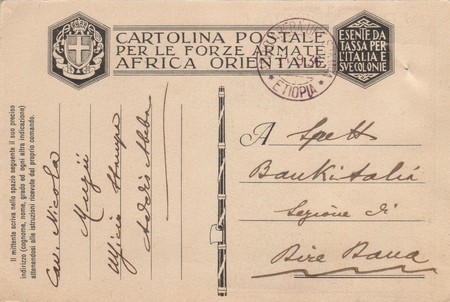 CARTOLINA POSTALE
PER LE FORZE ARMATE
AFRICA ORIENTALE
ESENTE DA
TASSA PER
L'ITALIA E
SVE COLONIE
ETIOPIA
Il mittente scriva nello spazio seguente il suo preciso
indirizzo (cognome, nome, grado ed ogni altra indicazione)
attenendosi alle istruzioni ricevute dal proprio comando.
Cav. Nicola
Ufficio Stampa
Addis Abeba
A Spett
Bankitalia
Sezione di
Dire Daua